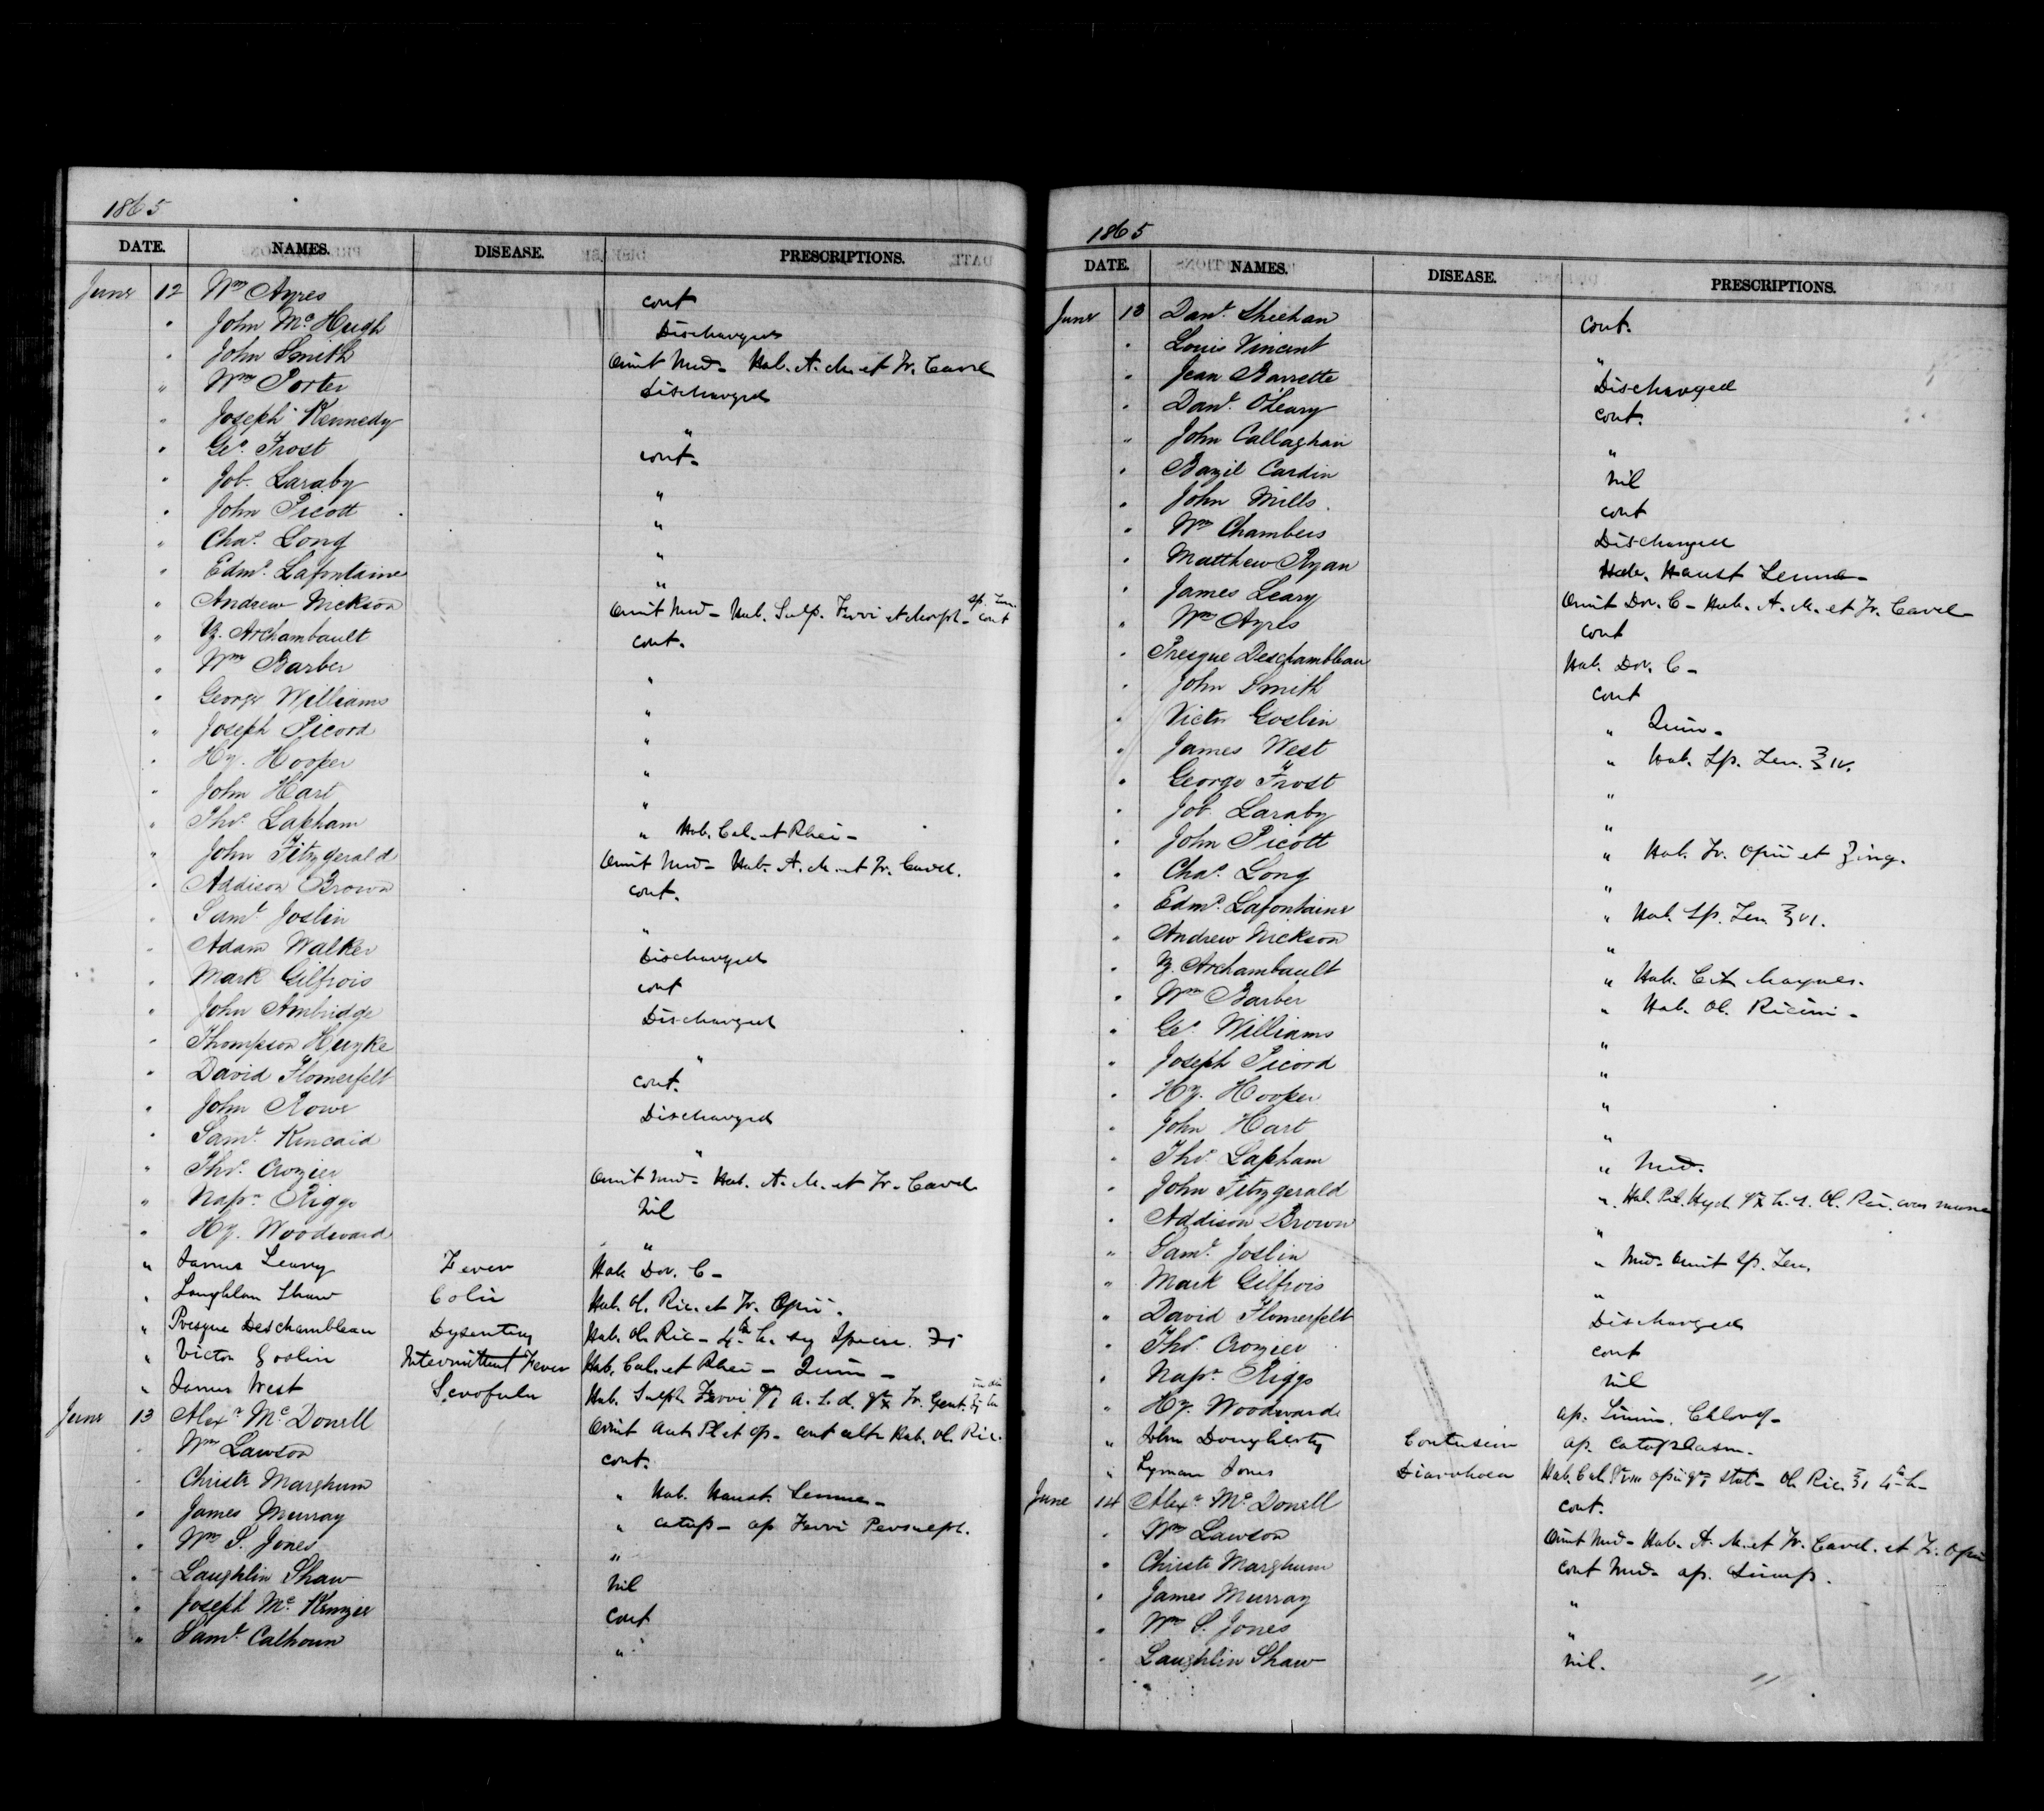 1865
DATE. NAMES. DISEASE. PRESCRIPTIONS.
June 12 Wm Ayres cont
" John Mc Hugh Discharged
" John Smith Omit Med - Hab. A. M. et Tr. Card
" Wm Porter Discharged
" Joseph Kennedy "
" Geo. Frost cont.
" Job. Laraby "
" John Picott "
" Chas. Long "
" Edmd. Lafontaine "
" Andrew Nickson Omit Med - Hab. Sulp. Ferri et Morph - cont
" Z. Archambault cont.
" Wm Barber "
" George Williams "
" Joseph Picord "
" Hy. Hooper "
" John Hart "
" Thos. Lapham " Hab. Cal. et Rhei -
" John Fitzgerald Omit Med - Hab. A. M. et Tr. Card.
" Addison Brown cont.
" Saml. Joslin "
" Adam Walker Discharged
" Mark Gilfrois cont
" John Ambridge Discharged
" Thompson Huyke "
" David Flomerfelt cont.
" John Rowe Discharged
" Saml. Kincaid "
" Thos. Crozier Omit Med - Hab. A. M. et Tr. Card
" Napn. Riggs nil
" Hy. Woodward "
" James Leary Fever Hab Dov. C -
" Laughlan Shaw Colic Hab. Ol. Ric. et Tr. Opii.
" Presque Deschambleau Dysentery Hab. Ol. Ric -
" Victor Goslin Intermittent Fever Hab. Cal. et Rhei - Quin -
" James West Scrofula Hab. Sulph Ferri
June 13 Alexr. Mc Donell Omit cont Hab. Ol. Ric.
" Wm Lawson cont.
" Christr Marghum " Hab. Haust. Sennae -
" James Murray " Catap - ap Ferri Persulph.
" Wm S. Jones "
" Laughlin Shaw nil
" Joseph Mc. Kenzie cont
" Saml. Calhoun "
1865
DATE. NAMES. DISEASE. PRESCRIPTIONS.
June 13 Danl. Sheehan cont.
" Louis Vincent "
" Jean Barrette Discharged
" Danl. O'Leary cont.
" John Callaghan "
" Bazil Cardin nil
" John Mills. cont
" Wm Chambers Discharged
" Matthew Ryan Hab. Haust Sennae -
" James Leary Omit Dov. C - Hab. A. M. et Tr. Card
" Wm Ayres cont
" Presque Deschambleau Hab. Dov. C -
" John Smith cont
" Victor Goslin " Quin -
" James West " Hab. Sp. Ʒ IV.
" George Frost "
" Job. Laraby "
" John Picott " Hab. Tr. Opii et Zing.
" Chas. Long "
" Edmd. Lafontaine " Hab. Sp. Ʒ VI.
" Andrew Nickson "
" Z. Archambault " Hab. Cit Magnes.
" Wm Barber " Hab. Ol. Ricini -
" Geo. Williams "
" Joseph Picord "
" Hy. Hooper "
" John Hart "
" Thos. Lapham " Med.
" John Fitzgerald " Hab. Pil. Hyd. h. s. Ol. Ric. cras mane
" Addison Brown "
" Saml. Joslin " Med - Omit Sp.
" Mark Gilfrois "
" David Flomerfelt Discharged
" Thos. Crozier cont
" Napn. Riggs nil
" Hy. Woodward ap. Linim. Chlorof -
" John Dougherty Contusion ap Cataplasm.
" Lyman Jones Diarrhoea Hab. Cal. Opii stat - Ol. Ric.
June 14 Alexr. Mc Donell cont.
" Wm Lawson Omit Med - Hab. A. M. et Tr. Card. et Tr. Opii
" Christr Marghum cont Med - ap.
" James Murray "
" Wm S. Jones "
" Laughlin Shaw nil.